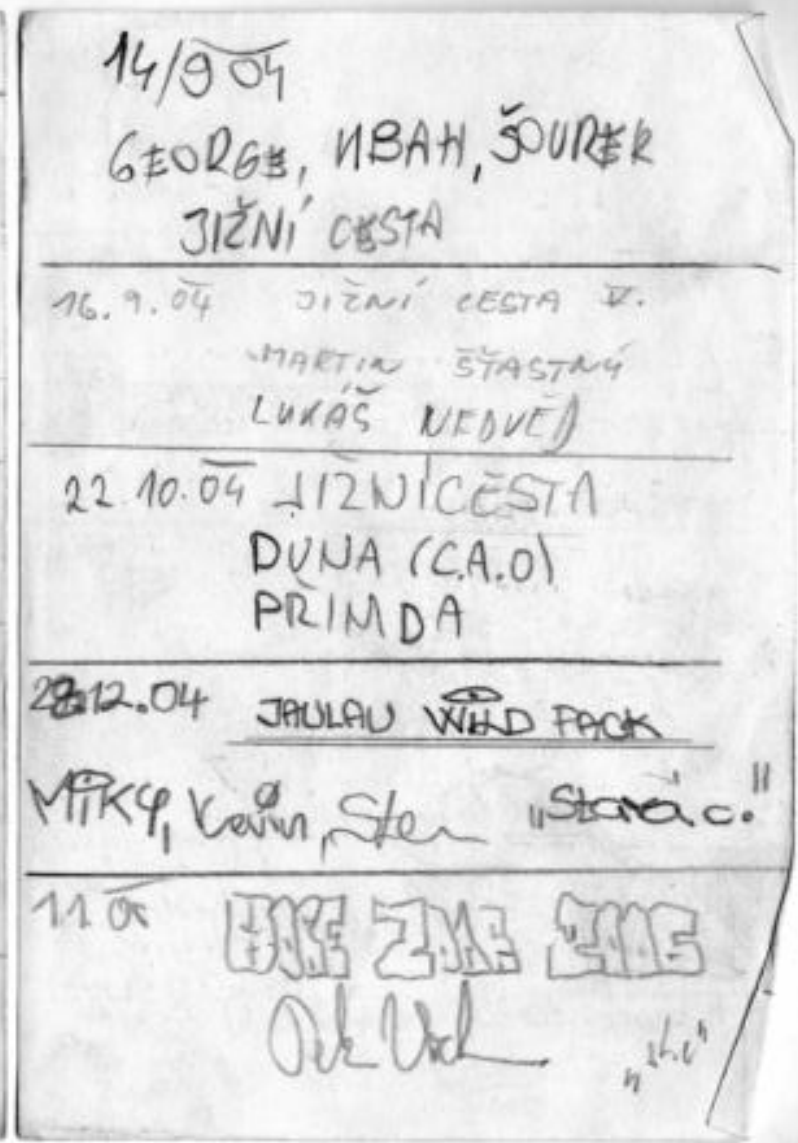 14/9 04
GEORGE, NBAH, ŠOUREK
JIŽNÍ CESTA
16.9.04 JIŽNÍ CESTA V.
MARTIN ŠŤASTNÝ
LUKÁŠ NEDVĚD
22.10.04 JIŽNÍ CESTA
DUNA (C.A.O)
PŘIMDA
28.12.04 JAULAU WILD PACK
MÍKY, Kevin, Sten „Stará c."
11 05